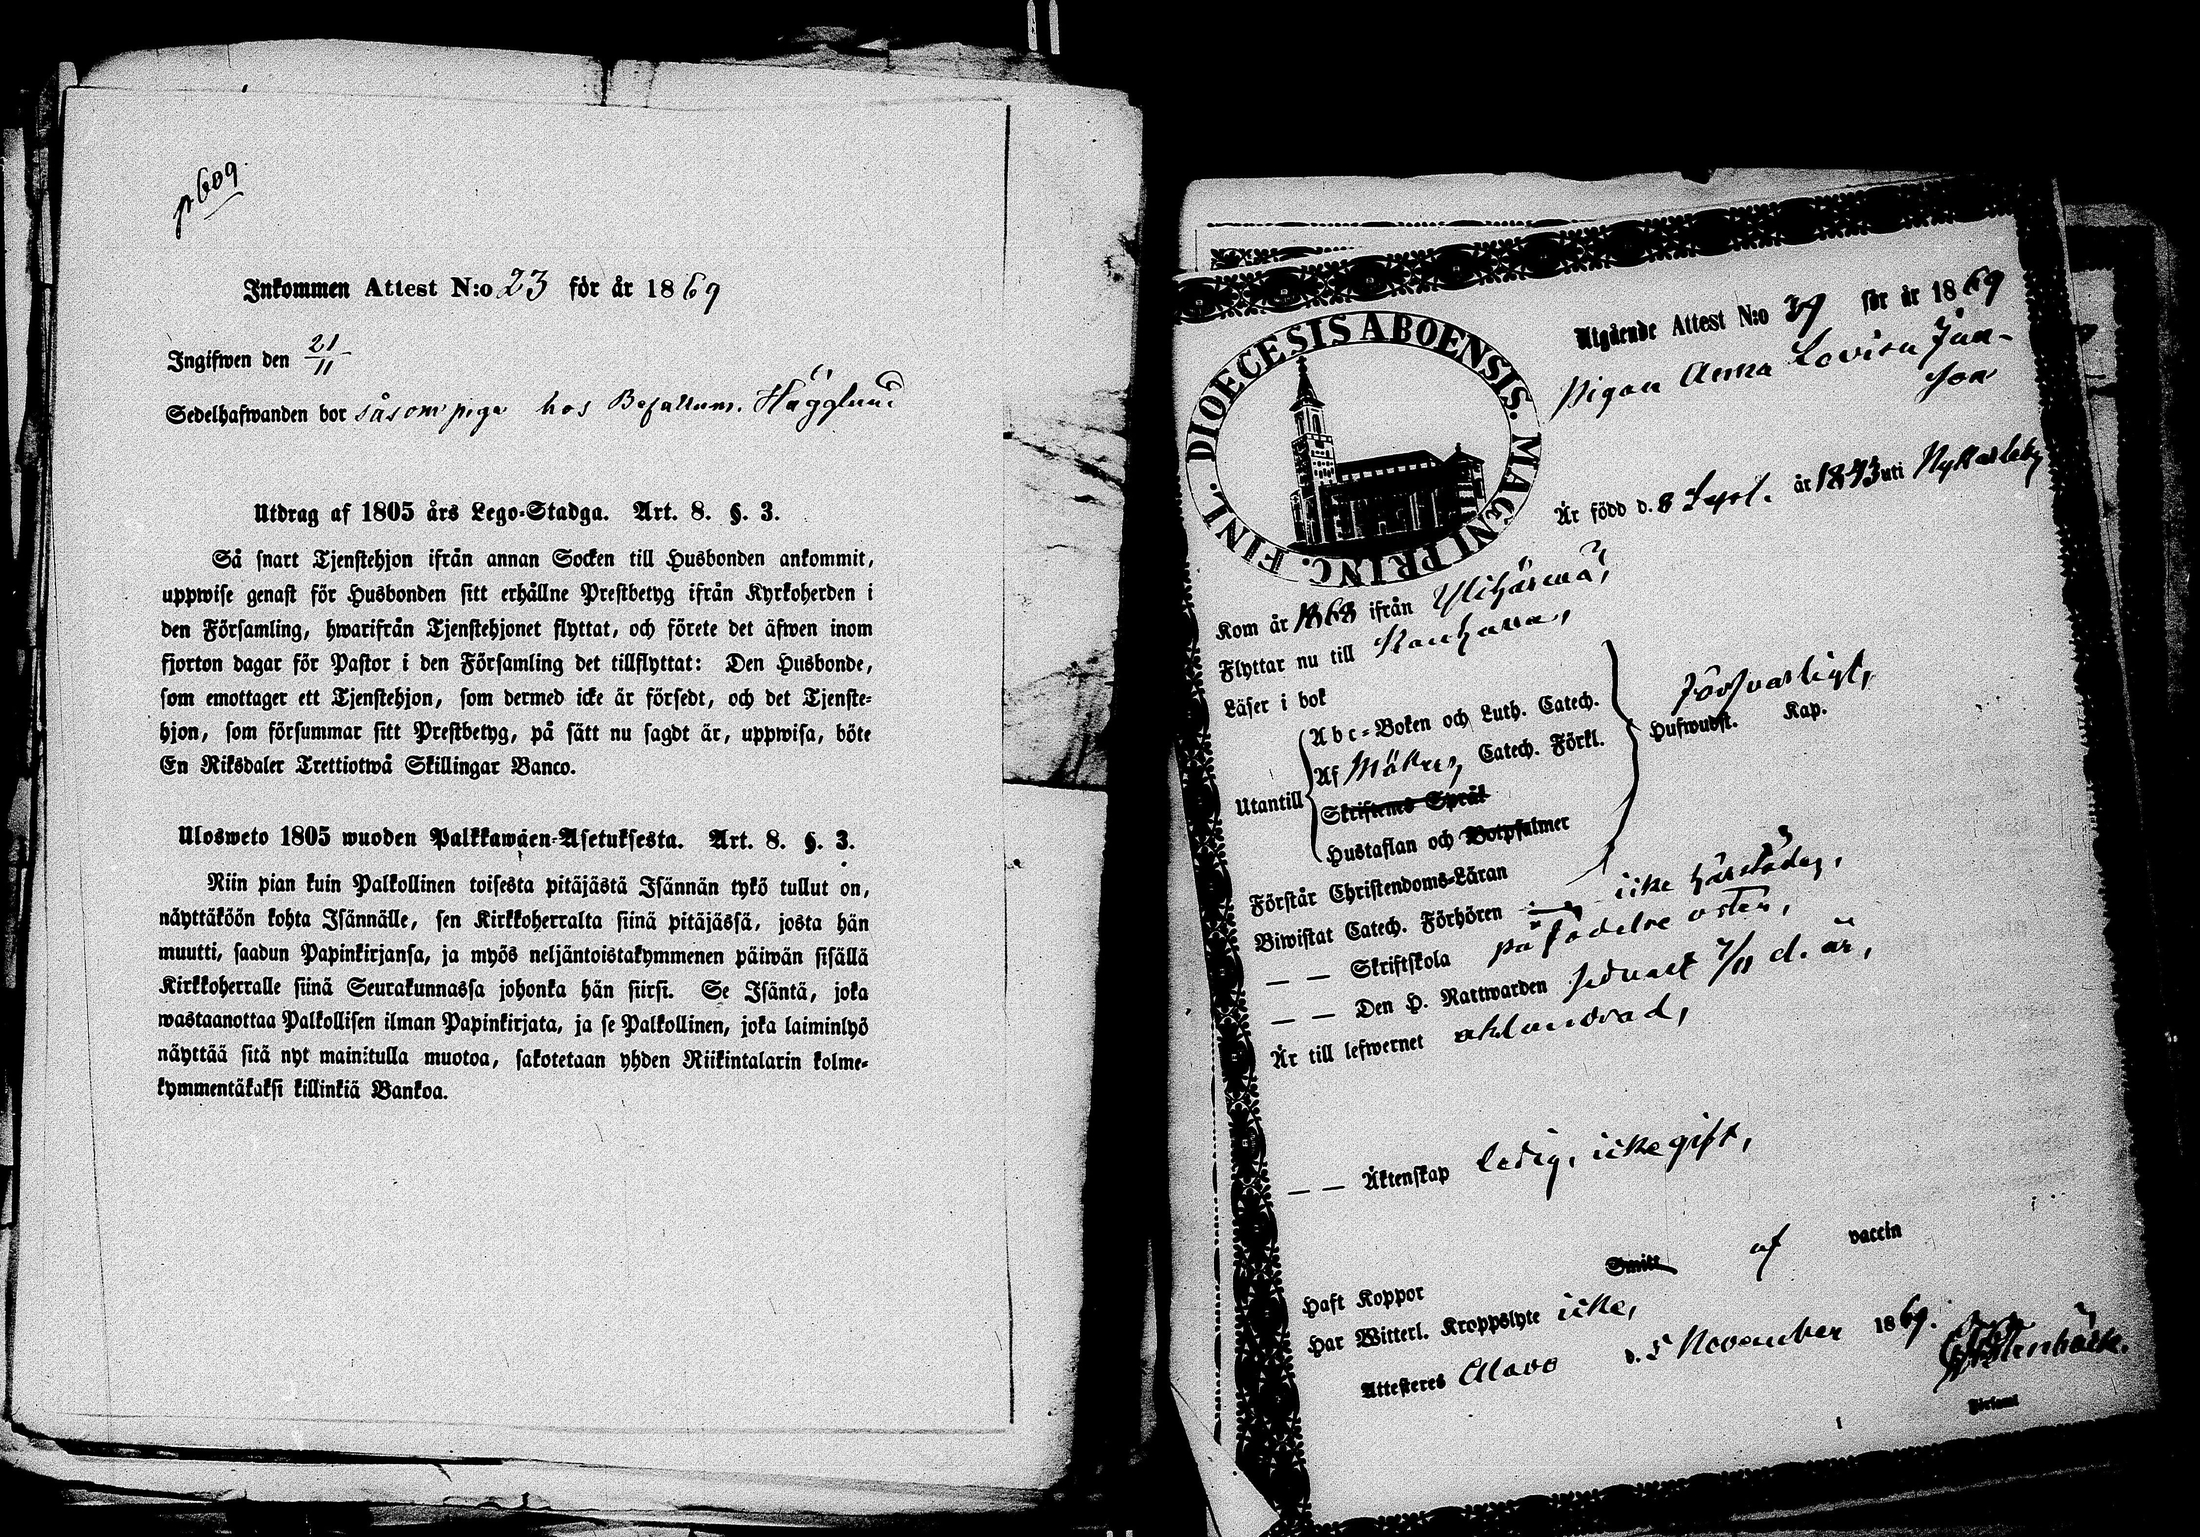 p 609
Inkommen Attest N:o 23 för år 1869
Ingifwen den 21/11
Sedelhafwanden bor såsom piga hos Befallnm. Hägglund
Utdrag af 1805 års Lego-Stadga. Art. 8. §. 3.
Så snart Tjenstehjon ifrån annan Socken till Husbonden ankommit,
uppwise genast för Husbonden sitt erhållne Prestbetyg ifrån Kyrkoherden i
den Församling, hwarifrån Tjenstehjonet flyttat, och förete det äfwen inom
fjorton dagar för Pastor i den Församling det tillflyttat: Den Husbonde,
som emottager ett Tjenstehjon, som dermed icke är försedt, och det Tjenste-
hjon, som försummar sitt Prestbetyg, på sätt nu sagdt är, uppwisa, böte
En Riksdaler Trettiotwå Skillingar Banco.
Ulosweto 1805 wuoden Palkkawäen-Asetuksesta. Art. 8. §. 3.
Niin pian kuin Palkollinen toisesta pitäjästä Isännän tykö tullut on,
näyttäköön kohta Isännälle, sen Kirkkoherralta siinä pitäjässä, josta hän
muutti, saadun Papinkirjansa, ja myös neljäntoistakymmenen päiwän sisällä
Kirkkoherralle siinä Seurakunnassa johonka hän siirsi. Se Isäntä, joka
wastaanottaa Palkollisen ilman Papinkirjata, ja se Palkollinen, joka laiminlyö
näyttää sitä nyt mainitulla muotoa, sakotetaan yhden Riikintalarin kolme-
kymmentäkaksi killinkiä Bankoa.
DIOECESIS ABOENSIS. MAGNI PRINC. FINL.
Utgående Attest N:o 37 för år 1869
Pigan Anna Lovisa Jaa-
son
Är född d. 8 Sept. år 1843 uti Nykarleby
Kom år 1868 ifrån Ylihärmä,
Flyttar nu till Kauhava,
Läser i bok
Utantill
Abc-Boken och Luth. Catech.
Af Catech. Förkl.
Skriftenes Språk
Hustaflan och Botpsalmer
Försvarligt,
Hufwudst. Kap.
Förstår Christendoms-Läran
Biwistat Catech. Förhören icke härstädes,
— — Skriftskola på födelse orten,
— — Den H. Nattwarden sednast 7/11 d. år,
Är till lefwernet oklandrad,
— — Äktenskap ledig, icke gift,
Haft Koppor Smitt af vaccin
Har Witterl. Kroppslyte icke,
Attesteres Alavo d. 5 November 1869.